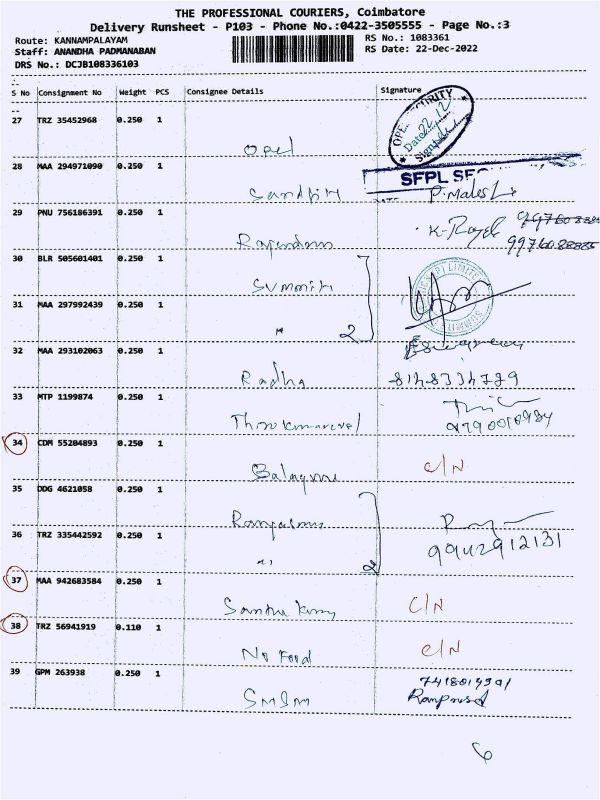 THE PROFESSIONAL COURIERS, Coimbatore
Delivery Runsheet - P103 - Phone No.:0422-3505555 - Page No.:3
Route: KANNAMPALAYAM
RS No.: 1083361
Staff: ANANDHA PADMANABAN
RS Date: 22-Dec-2022
DRS No.: DCJB108336103
S No Consignment No Weight PCS Consignee Details Signature
27 TRZ 35452968 0.250 1
Opel
28 MAA 294971090 0.250 1
SFPL
29 PNU 756186391 0.250 1
9976088885
30 BLR 505601401 0.250 1
31 MAA 297992439 0.250 1
" 2
32 MAA 293102063 0.250 1
Radha 8148334789
33 MTP 1199874 0.250 1
34 CDM 55204893 0.250 1
C/N
35 DDG 4621058 0.250 1
36 TRZ 335442592 0.250 1
" 2 9942912131
37 MAA 942683584 0.250 1
C/N
38 TRZ 56941919 0.110 1
C/N
No Food
39 GPM 263938 0.250 1
SMSM
6